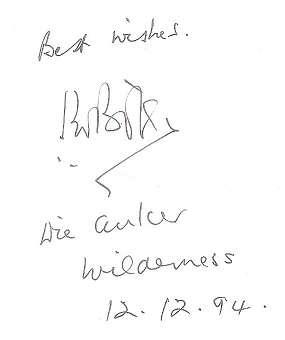 Best wishes.
PWBotha
Die Anker
Wilderness
12.12.94.